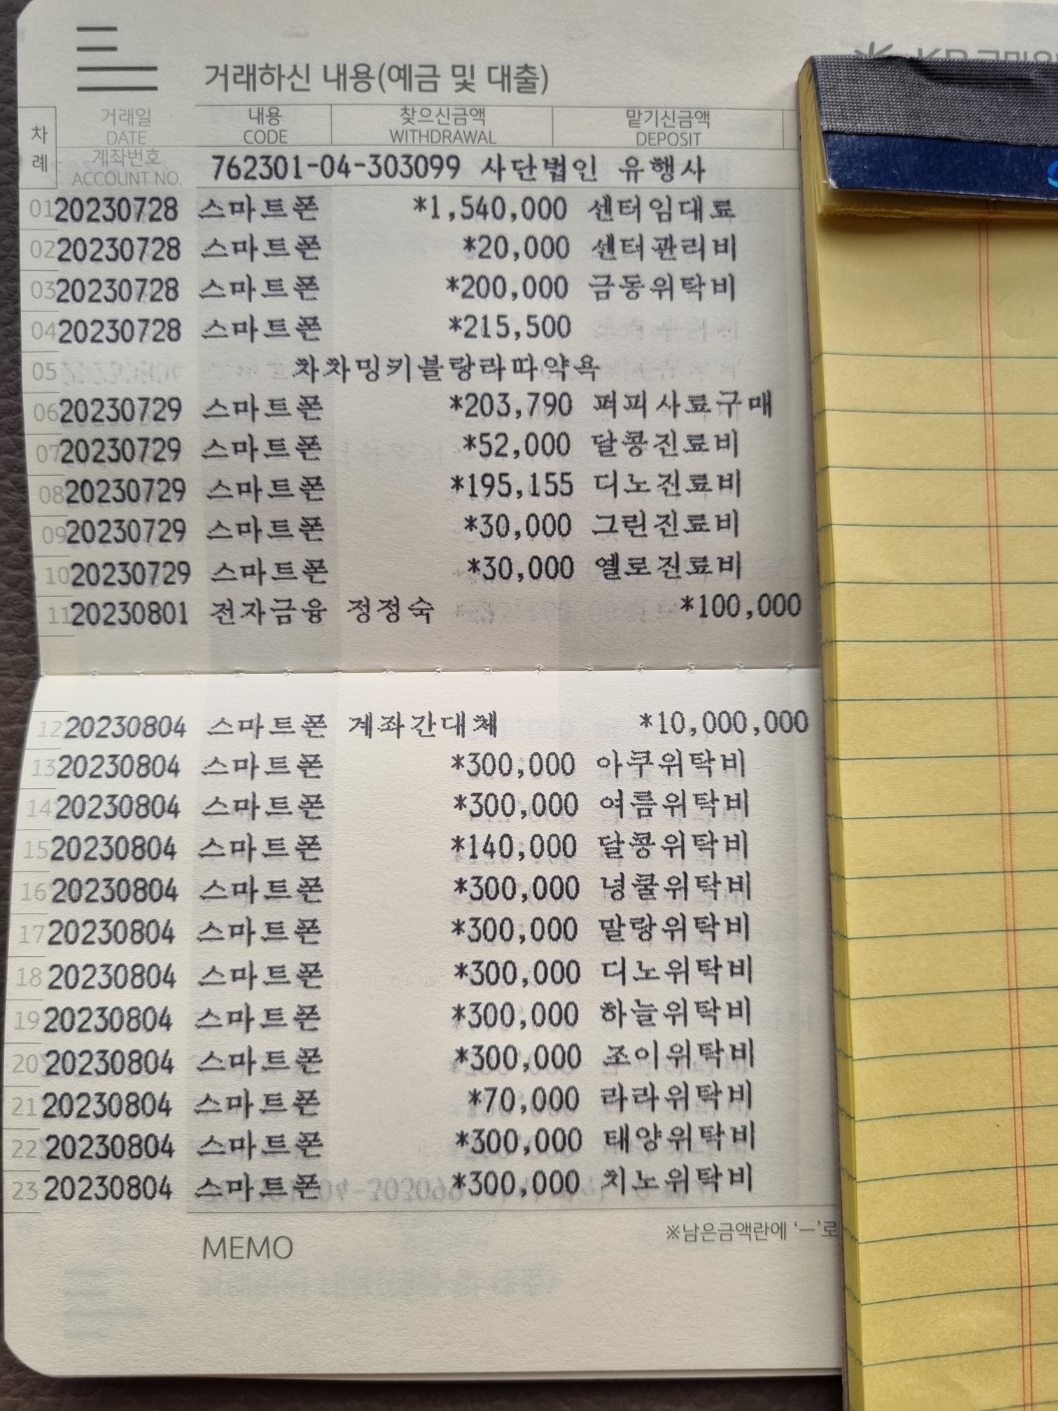 거래하신 내용(예금 및 대출)
차례 거래일 DATE 계좌번호 ACCOUNT NO. 내용 CODE 찾으신금액 WITHDRAWAL 맡기신금액 DEPOSIT
762301-04-303099 사단법인 유행사
01 20230728 스마트폰 *1,540,000 센터임대료
02 20230728 스마트폰 *20,000 센터관리비
03 20230728 스마트폰 *200,000 금동위탁비
04 20230728 스마트폰 *215,500
05 차차밍키블랑라따약욕
06 20230729 스마트폰 *203,790 퍼피사료구매
07 20230729 스마트폰 *52,000 달콩진료비
08 20230729 스마트폰 *195,155 디노진료비
09 20230729 스마트폰 *30,000 그린진료비
10 20230729 스마트폰 *30,000 옐로진료비
11 20230801 전자금융 정정숙 *100,000
12 20230804 스마트폰 계좌간대체 *10,000,000
13 20230804 스마트폰 *300,000 아쿠위탁비
14 20230804 스마트폰 *300,000 여름위탁비
15 20230804 스마트폰 *140,000 달콩위탁비
16 20230804 스마트폰 *300,000 넝쿨위탁비
17 20230804 스마트폰 *300,000 말랑위탁비
18 20230804 스마트폰 *300,000 디노위탁비
19 20230804 스마트폰 *300,000 하늘위탁비
20 20230804 스마트폰 *300,000 조이위탁비
21 20230804 스마트폰 *70,000 라라위탁비
22 20230804 스마트폰 *300,000 태양위탁비
23 20230804 스마트폰 *300,000 치노위탁비
※남은금액란에 '—'로
MEMO